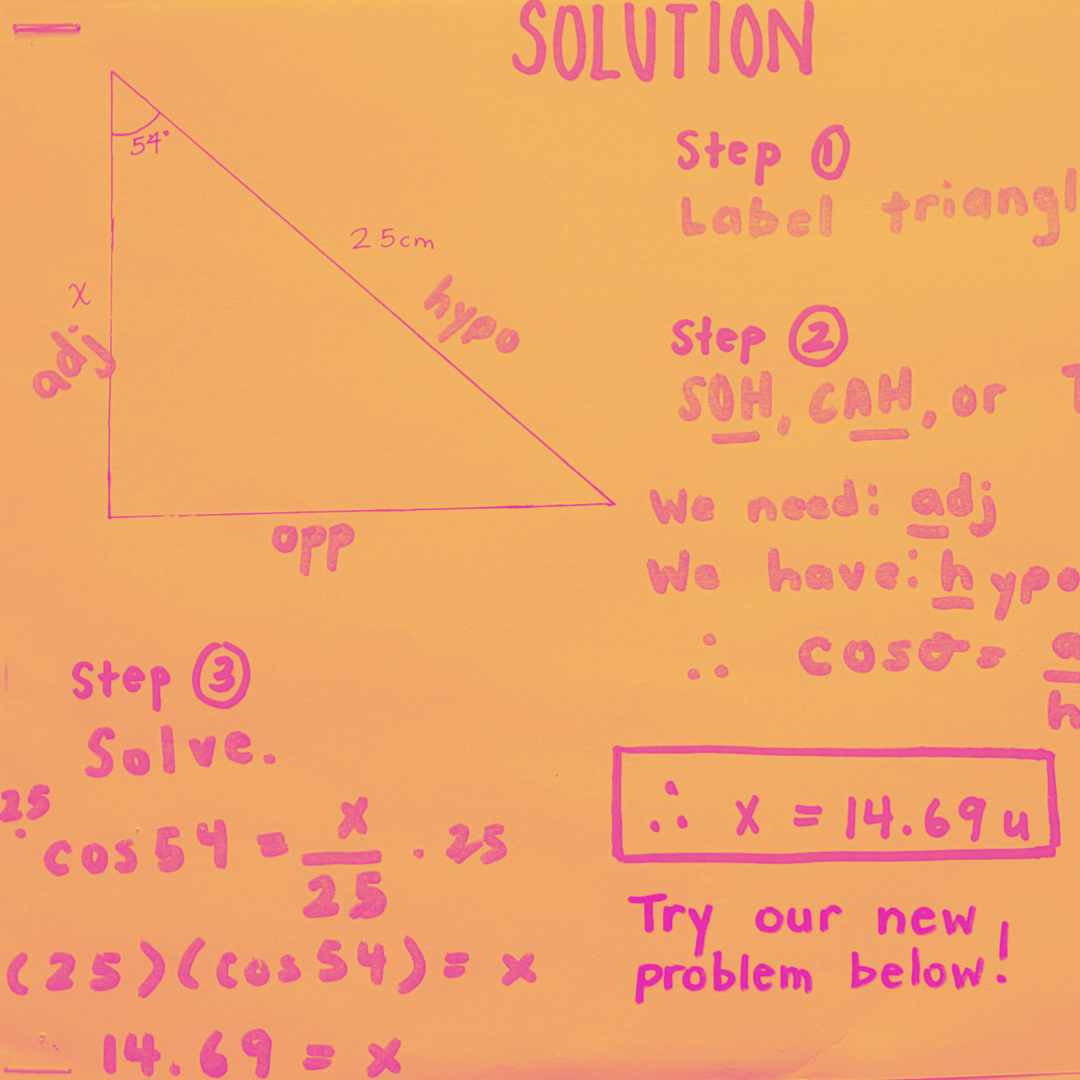 SOLUTION
54°
25cm
hypo
x
adj
opp
Step ①
Label
Step ②
SOH, CAH, or
We need: adj
We have: hypo
∴ cosθ =
Step ③
Solve.
25 · cos54 = x/25 · 25
(25)(cos54) = x
∴ 14.69 = x
∴ x = 14.69 u
Try our new
problem below!